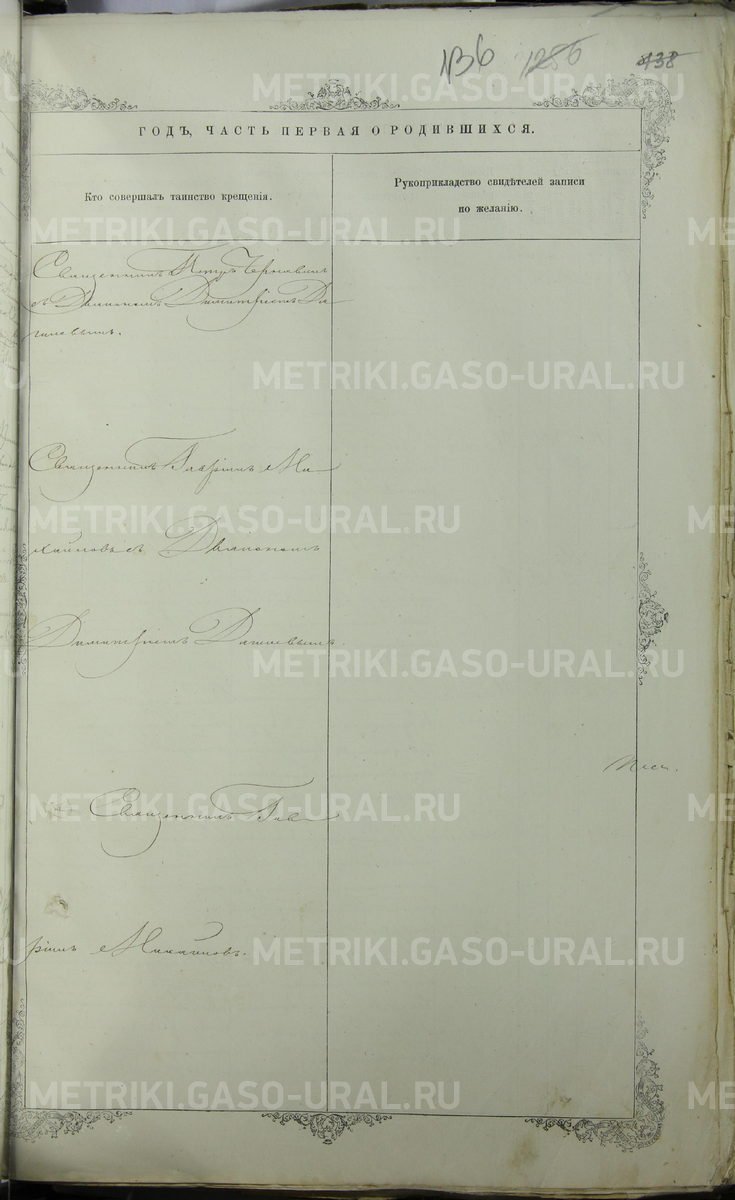 136 1286 438
ГОДЪ, ЧАСТЬ ПЕРВАЯ О РОДИВШИХСЯ.
Кто совершалъ таинство крещенія.
Рукоприкладство свидѣтелей записи
по желанію.
Священникъ Петръ Чернавинъ
съ Діакономъ Димитріемъ Да-
шевымъ.
Священникъ Гавріилъ Ми-
хайловъ съ Діакономъ
Димитріемъ
Священникъ Гав-
ріилъ Михайловъ.
METRIKI.GASO-URAL.RU